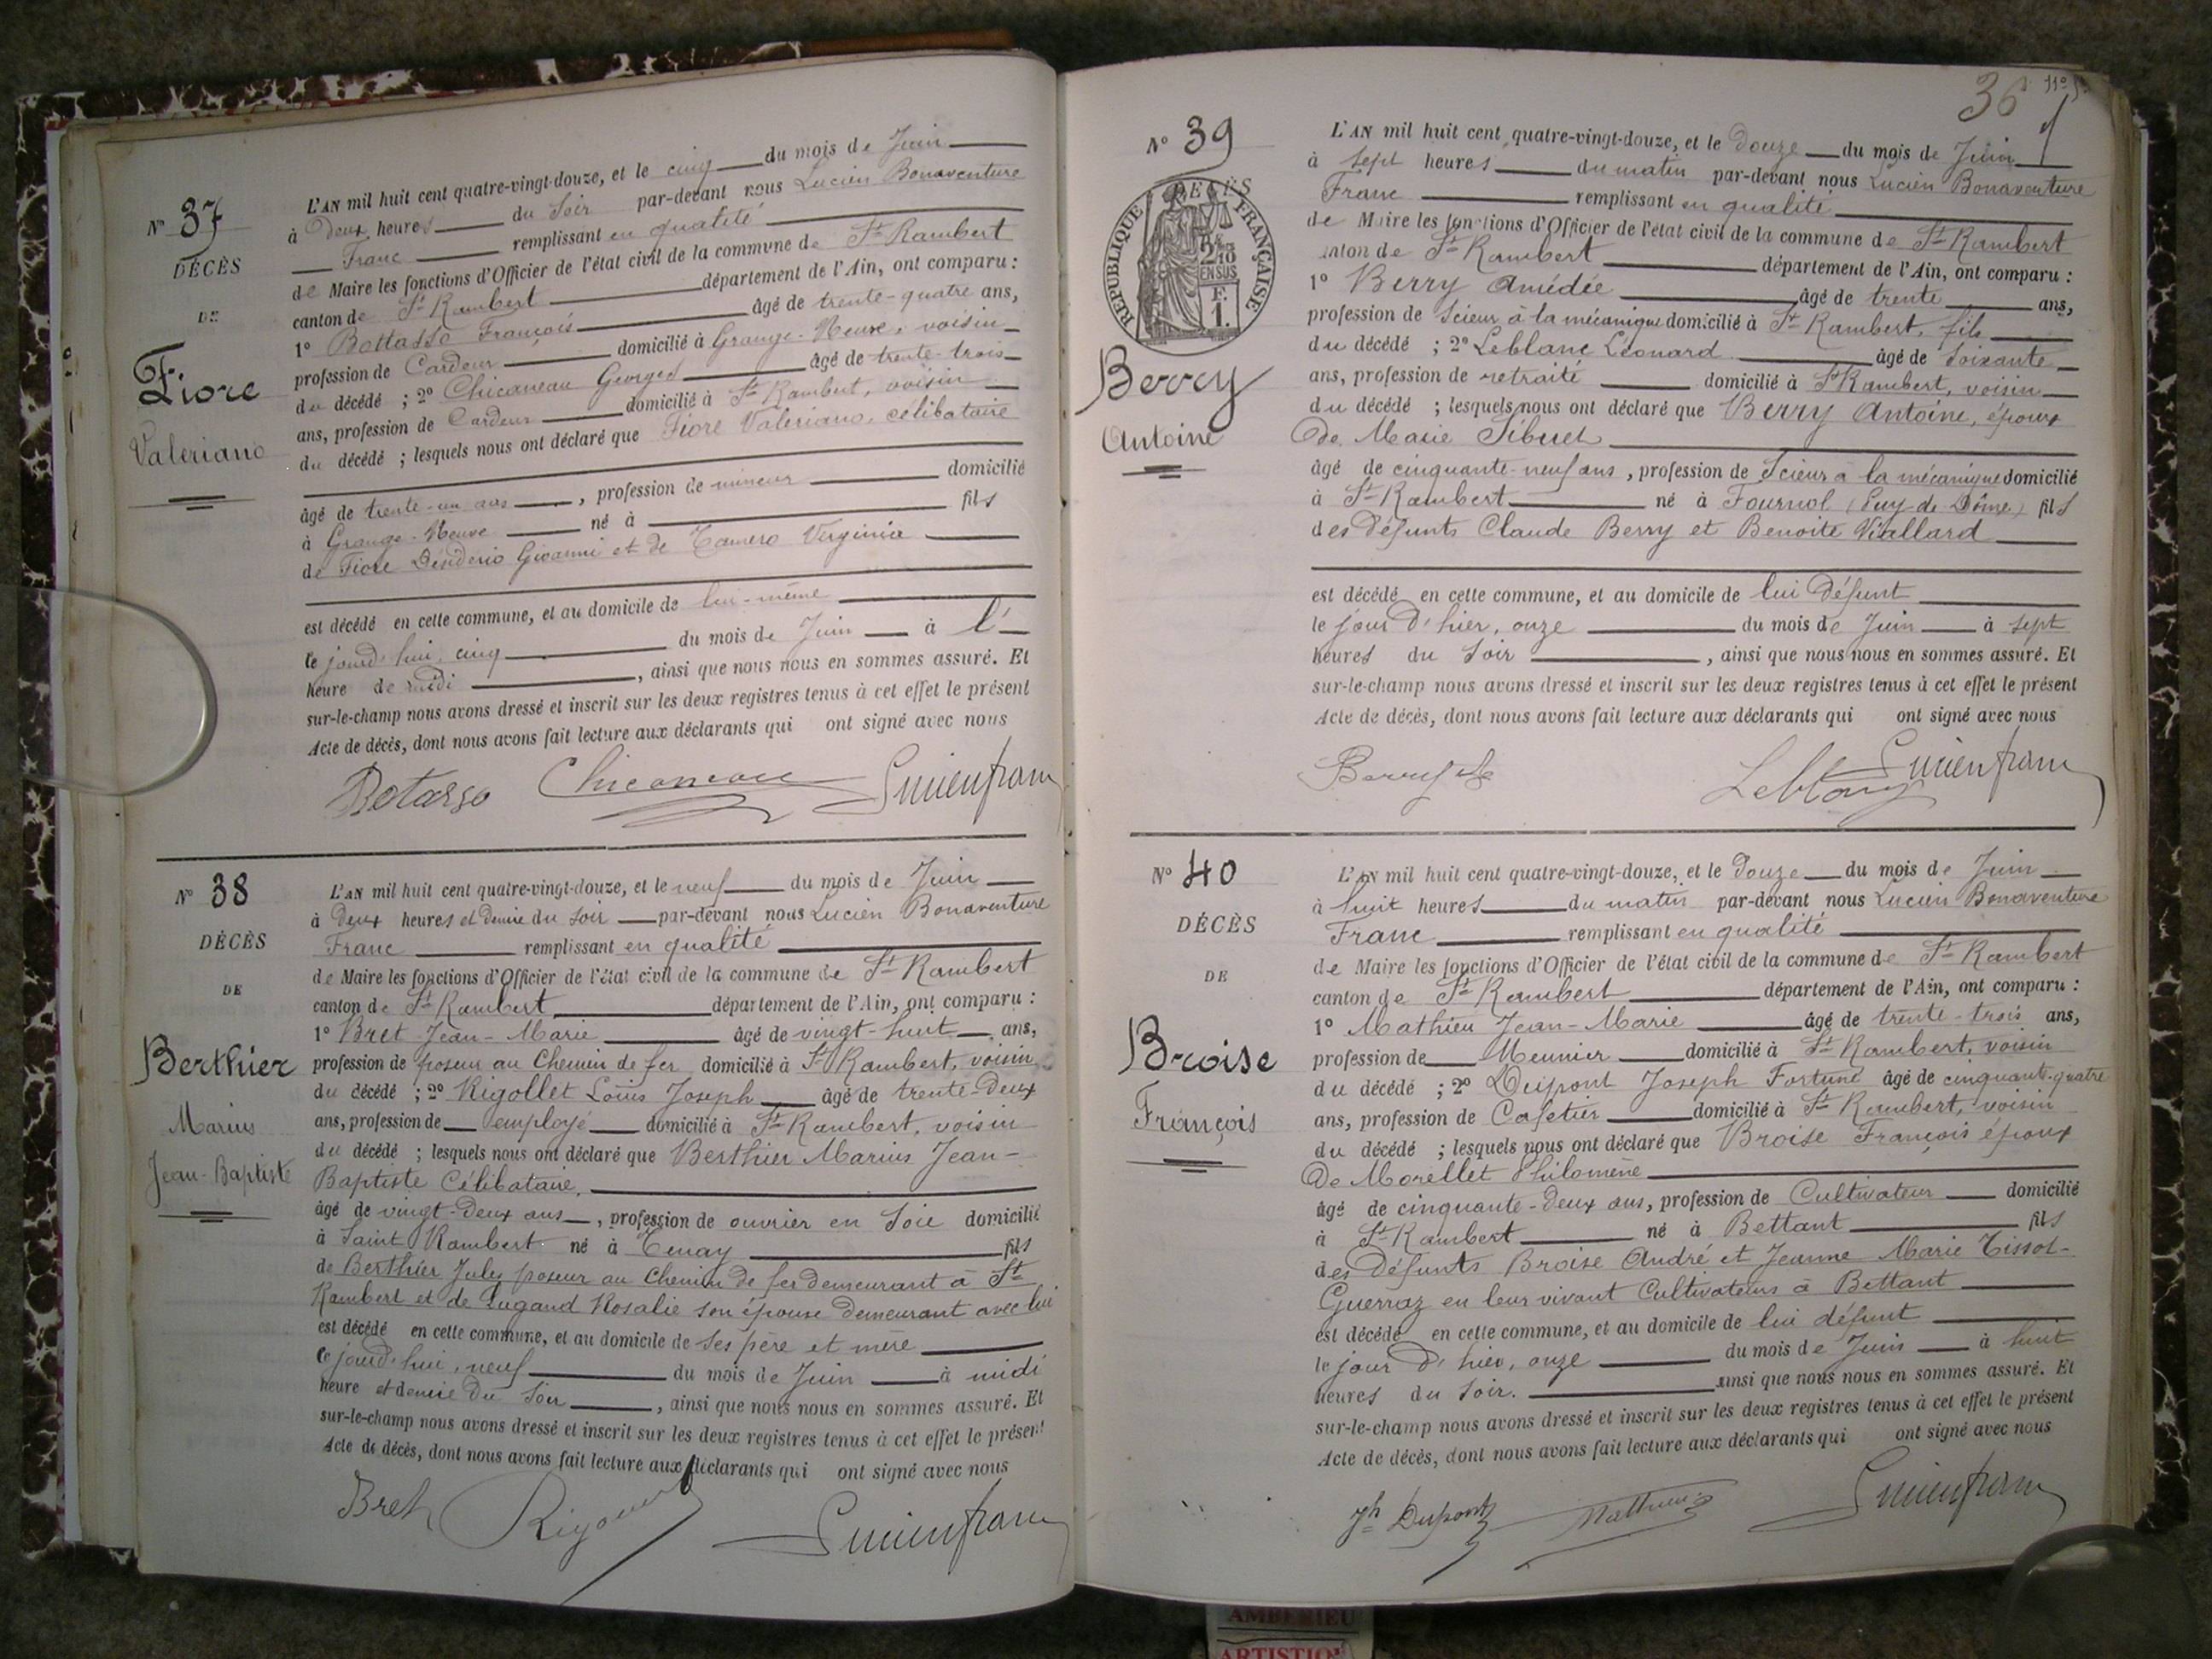 N° 37
DÉCÈS
DE
Fiore
Valeriano
L'AN mil huit cent quatre-vingt-douze, et le cinq du mois de Juin
à deux heures du soir par-devant nous Lucien Bonaventure
Franc remplissant en qualité
de Maire les fonctions d'Officier de l'état civil de la commune de St Rambert
canton de St Rambert département de l'Ain, ont comparu :
1° Bottasso François âgé de trente-quatre ans,
profession de Cardeur domicilié à Grange-Neuve, voisin
du décédé ; 2° Chicaneau Georges âgé de trente-trois
ans, profession de Cardeur domicilié à St Rambert, voisin
du décédé ; lesquels nous ont déclaré que Fiore Valeriano, célibataire
âgé de trente-un ans , profession de mineur domicilié
à Grange-Neuve né à fils
de Fiore Désidério Giovanni et de Verginia
est décédé en cette commune, et au domicile de lui-même
le jourd'hui, cinq du mois de Juin à l'
heure de midi , ainsi que nous nous en sommes assuré. Et
sur-le-champ nous avons dressé et inscrit sur les deux registres tenus à cet effet le présent
Acte de décès, dont nous avons fait lecture aux déclarants qui ont signé avec nous
Botasso Chicaneau Lucien franc
N° 38
DÉCÈS
DE
Berthier
Marius
Jean-Baptiste
L'AN mil huit cent quatre-vingt-douze, et le neuf du mois de Juin
à deux heures et demie du soir par-devant nous Lucien Bonaventure
Franc remplissant en qualité
de Maire les fonctions d'Officier de l'état civil de la commune de St Rambert
canton de St Rambert département de l'Ain, ont comparu :
1° Bret Jean-Marie âgé de vingt-huit ans,
profession de poseur au Chemin de fer domicilié à St Rambert, voisin
du décédé ; 2° Rigollet Louis Joseph âgé de trente-deux
ans, profession de employé domicilié à St Rambert, voisin
du décédé ; lesquels nous ont déclaré que Berthier Marius Jean-
Baptiste Célibataire,
âgé de vingt-deux ans , profession de ouvrier en Soie domicilié
à Saint Rambert né à Tenay fils
de Berthier Jules poseur au Chemin de fer demeurant à St
Rambert et de Lugand Rosalie son épouse demeurant avec lui
est décédé en cette commune, et au domicile de ses père et mère
ce jourd'hui, neuf du mois de Juin à midi
heure et demie du Soir , ainsi que nous nous en sommes assuré. Et
sur-le-champ nous avons dressé et inscrit sur les deux registres tenus à cet effet le présent
Acte de décès, dont nous avons fait lecture aux déclarants qui ont signé avec nous
Bret Lucien franc
36
N° 39
DÉCÈS
REPUBLIQUE FRANÇAISE
2/10
EN SUS
F.
1.
Berry
Antoine
L'AN mil huit cent quatre-vingt-douze, et le douze du mois de Juin
à sept heures du matin par-devant nous Lucien Bonaventure
Franc remplissant en qualité
de Maire les fonctions d'Officier de l'état civil de la commune de St Rambert
canton de St Rambert département de l'Ain, ont comparu :
1° Berry Amédée âgé de trente ans,
profession de Scieur à la mécanique domicilié à St Rambert, fils
du décédé ; 2° Leblanc Léonard âgé de soixante
ans, profession de retraité domicilié à St Rambert, voisin
du décédé ; lesquels nous ont déclaré que Berry Antoine, époux
de Marie Sibuet
âgé de cinquante-neuf ans , profession de Scieur à la mécanique domicilié
à St Rambert né à Fournol (Puy-de-Dôme) fils
des défunts Claude Berry et Benoite Viallard
est décédé en cette commune, et au domicile de lui défunt
le jour d'hier, onze du mois de Juin à sept
heures du soir , ainsi que nous nous en sommes assuré. Et
sur-le-champ nous avons dressé et inscrit sur les deux registres tenus à cet effet le présent
Acte de décès, dont nous avons fait lecture aux déclarants qui ont signé avec nous
Berry Leblanc Lucien franc
N° 40
DÉCÈS
DE
Broise
François
L'AN mil huit cent quatre-vingt-douze, et le douze du mois de Juin
à huit heures du matin par-devant nous Lucien Bonaventure
Franc remplissant en qualité
de Maire les fonctions d'Officier de l'état civil de la commune de St Rambert
canton de St Rambert département de l'Ain, ont comparu :
1° Mathieu Jean-Marie âgé de trente-trois ans,
profession de Meunier domicilié à St Rambert, voisin
du décédé ; 2° Dupont Joseph Fortuné âgé de cinquante-quatre
ans, profession de Cafetier domicilié à St Rambert, voisin
du décédé ; lesquels nous ont déclaré que Broise François époux
de Morellet Philomène
âgé de cinquante-deux ans, profession de Cultivateur domicilié
à St Rambert né à Bettant fils
des défunts Broise André et Jeanne Marie Tissot-
Guerraz en leur vivant Cultivateurs à Bettant
est décédé en cette commune, et au domicile de lui défunt
le jour d'hier, onze du mois de Juin à huit
heures du soir. ainsi que nous nous en sommes assuré. Et
sur-le-champ nous avons dressé et inscrit sur les deux registres tenus à cet effet le présent
Acte de décès, dont nous avons fait lecture aux déclarants qui ont signé avec nous
Jh Dupont Mathieu Lucien franc
AMBERIEU